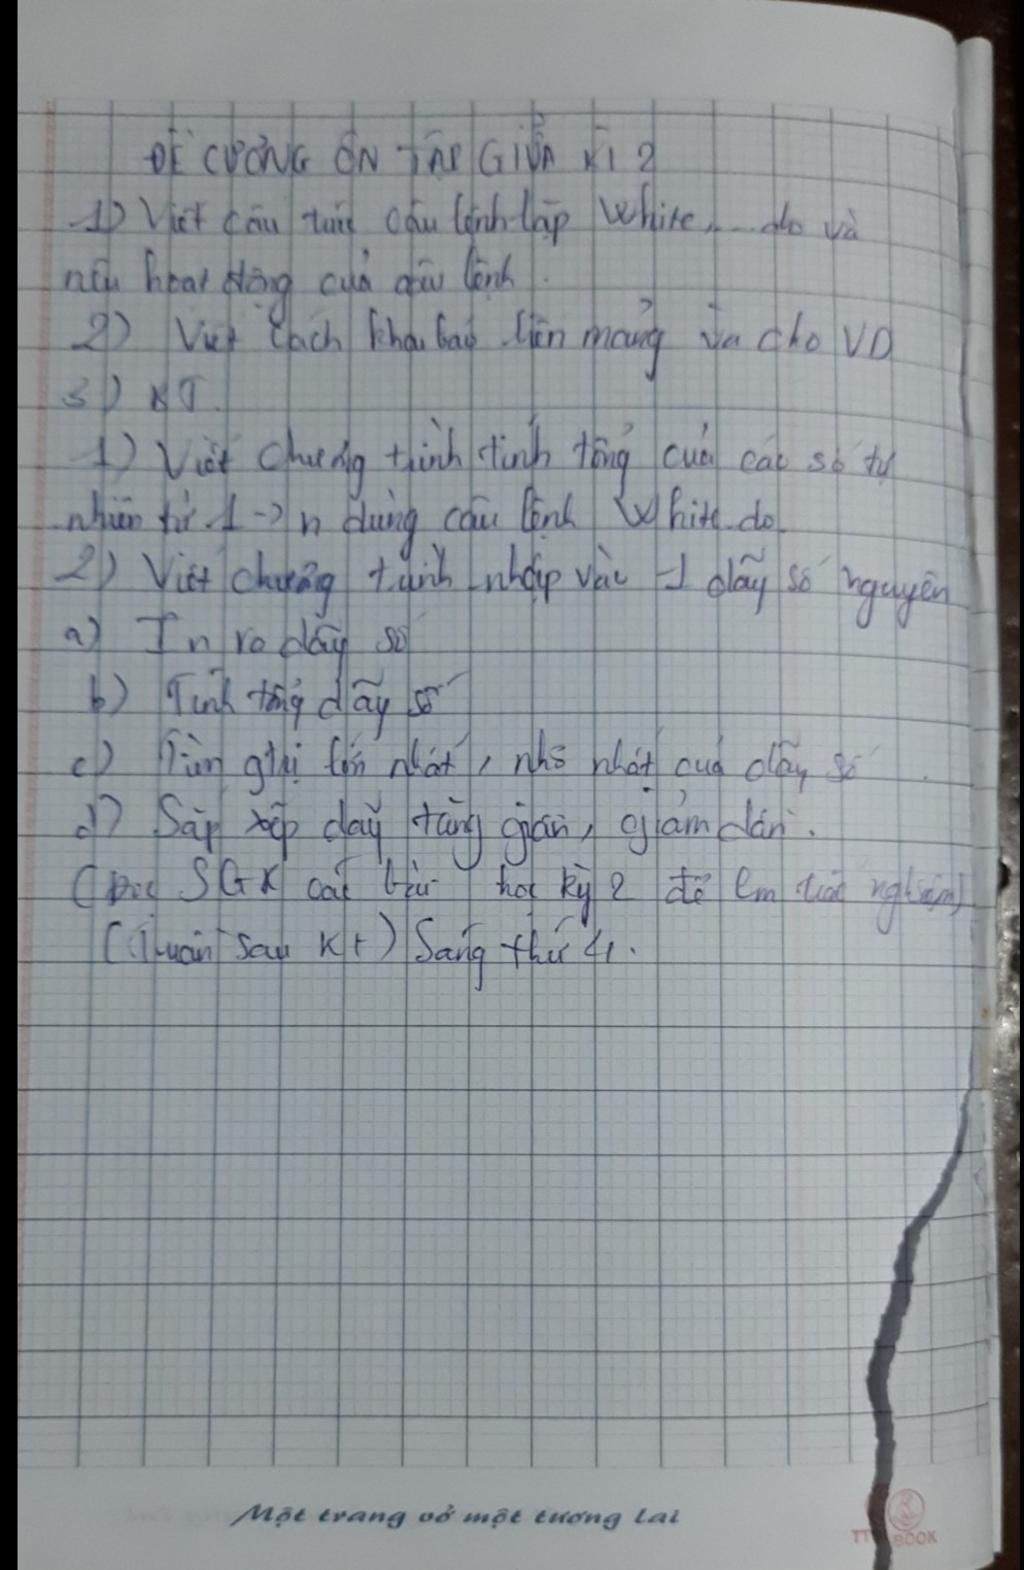 ĐỀ CƯƠNG ÔN TẬP GIỮA KÌ 2
1) Viết câu trúc câu lệnh lặp White....do và
nêu hoạt động của câu lệnh.
2) Viết cách khai báo biến mảng và cho VD
3) KT.
1) Viết chương trình tính tổng của các số tự
nhiên từ 1 -> n dùng câu lệnh White.do.
2) Viết chương trình nhập vào 1 dãy số nguyên
a) In ra dãy số
b) Tính tổng dãy số
c) Tìm gtrị lớn nhất, nhỏ nhất của dãy số.
d) Sắp xếp dãy tăng dần, giảm dần.
(Đọc SGK các bài học kỳ 2 để làm trắc nghiệm)
(Tuần sau Kt) Sáng thứ 4.
Một trang vở một tương lai
BOOK